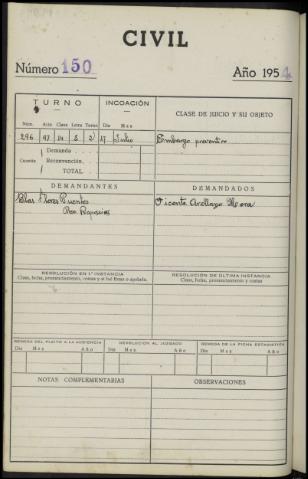 CIVIL
Número 150 Año 1954
TURNO INCOACIÓN CLASE DE JUICIO Y SU OBJETO
Núm. Acto Clase Letra Turno Día Mes
296 97 14 S 2 17 Julio Embargo preventivo
Demanda
Cuantía Reconvención
TOTAL
DEMANDANTES DEMANDADOS
Pilar Flores Puentes Vicente Arellano Mora
RESOLUCIÓN EN 1.ª INSTANCIA RESOLUCIÓN DE ÚLTIMA INSTANCIA
Clase, fecha, pronunciamiento, costas y si fué firme o apelada. Clase, fecha, pronunciamiento y costas
REMESA DEL PLEITO A LA AUDIENCIA RESOLUCIÓN AL JUZGADO REMESA DE LA FICHA ESTADÍSTICA
Día Mes Año Día Mes Año Día Mes Año
NOTAS COMPLEMENTARIAS OBSERVACIONES